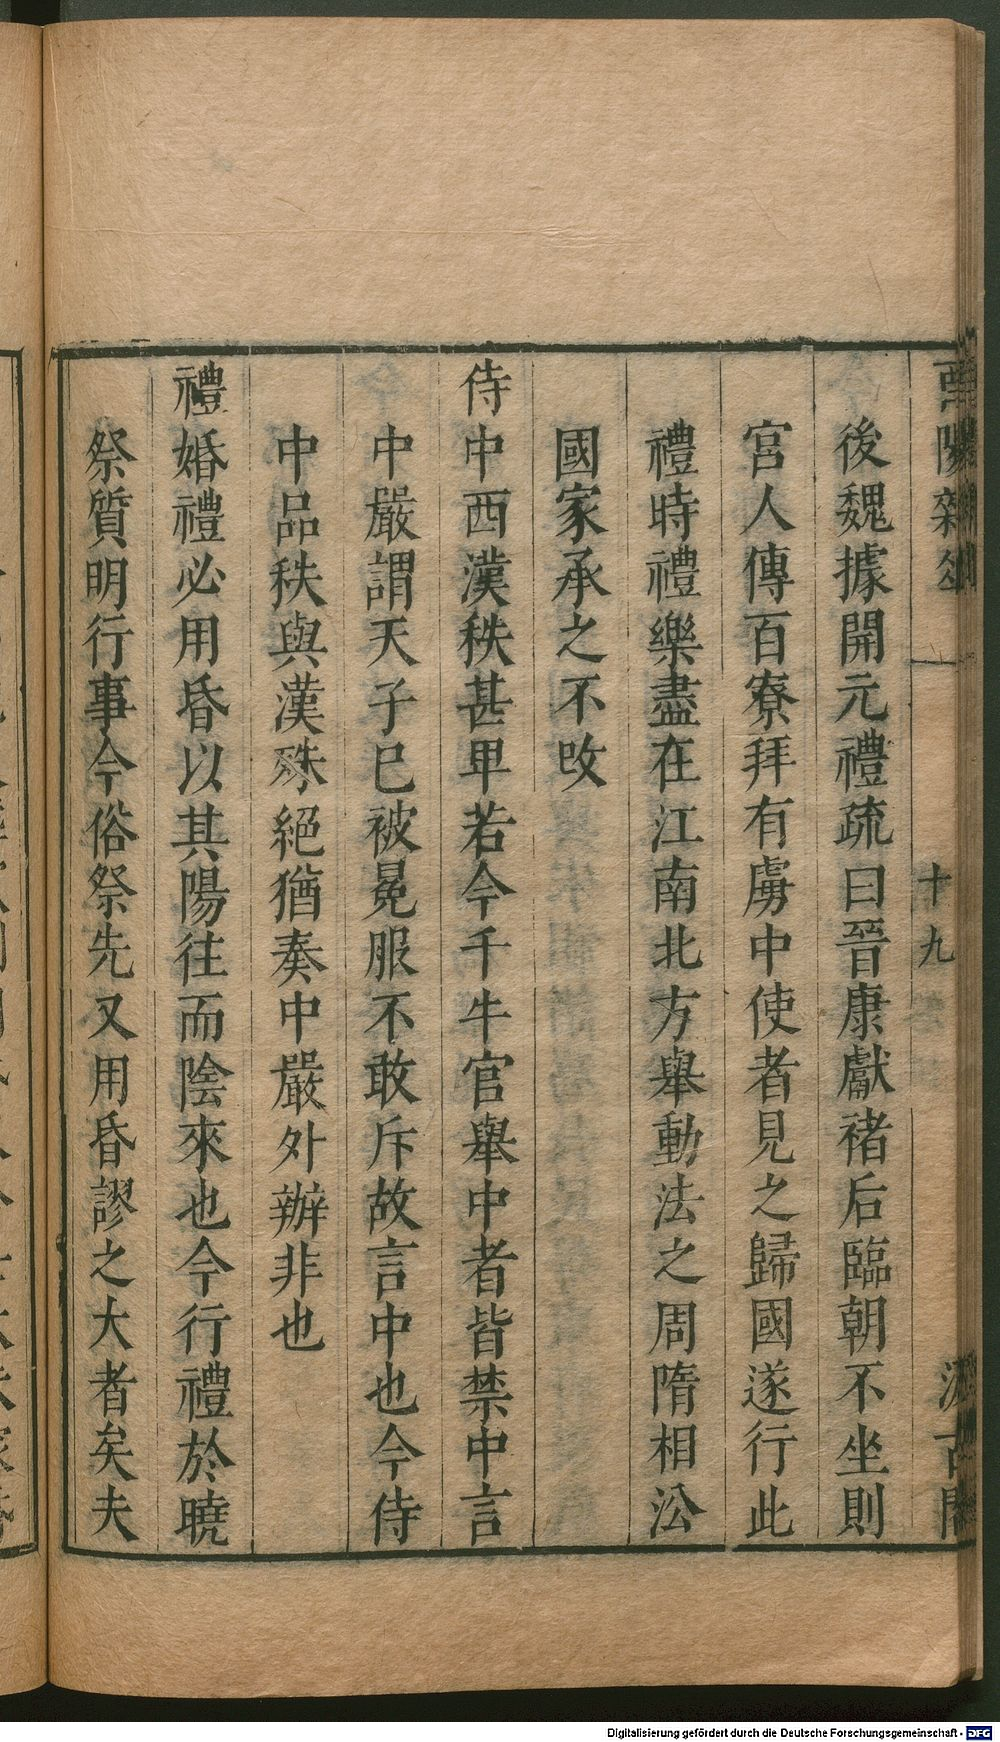 後魏據開元禮疏曰晉康獻褚后臨朝不坐則
宮人傳百寮拜有虜中使者見之歸國遂行此
禮時禮樂盡在江南北方舉動法之周隋相㳂
國家承之不攺
侍中西漢秩甚卑若今千牛官舉中者皆禁中言
中嚴謂天子已被冕服不敢斥故言中也今侍
中品秩與漢殊絕猶奏中嚴外辦非也
禮婚禮必用昏以其陽往而陰來也今行禮於曉
祭質明行事今俗祭先又用昏謬之大者矣夫
十九
Digitalisierung gefördert durch die Deutsche Forschungsgemeinschaft - DFG